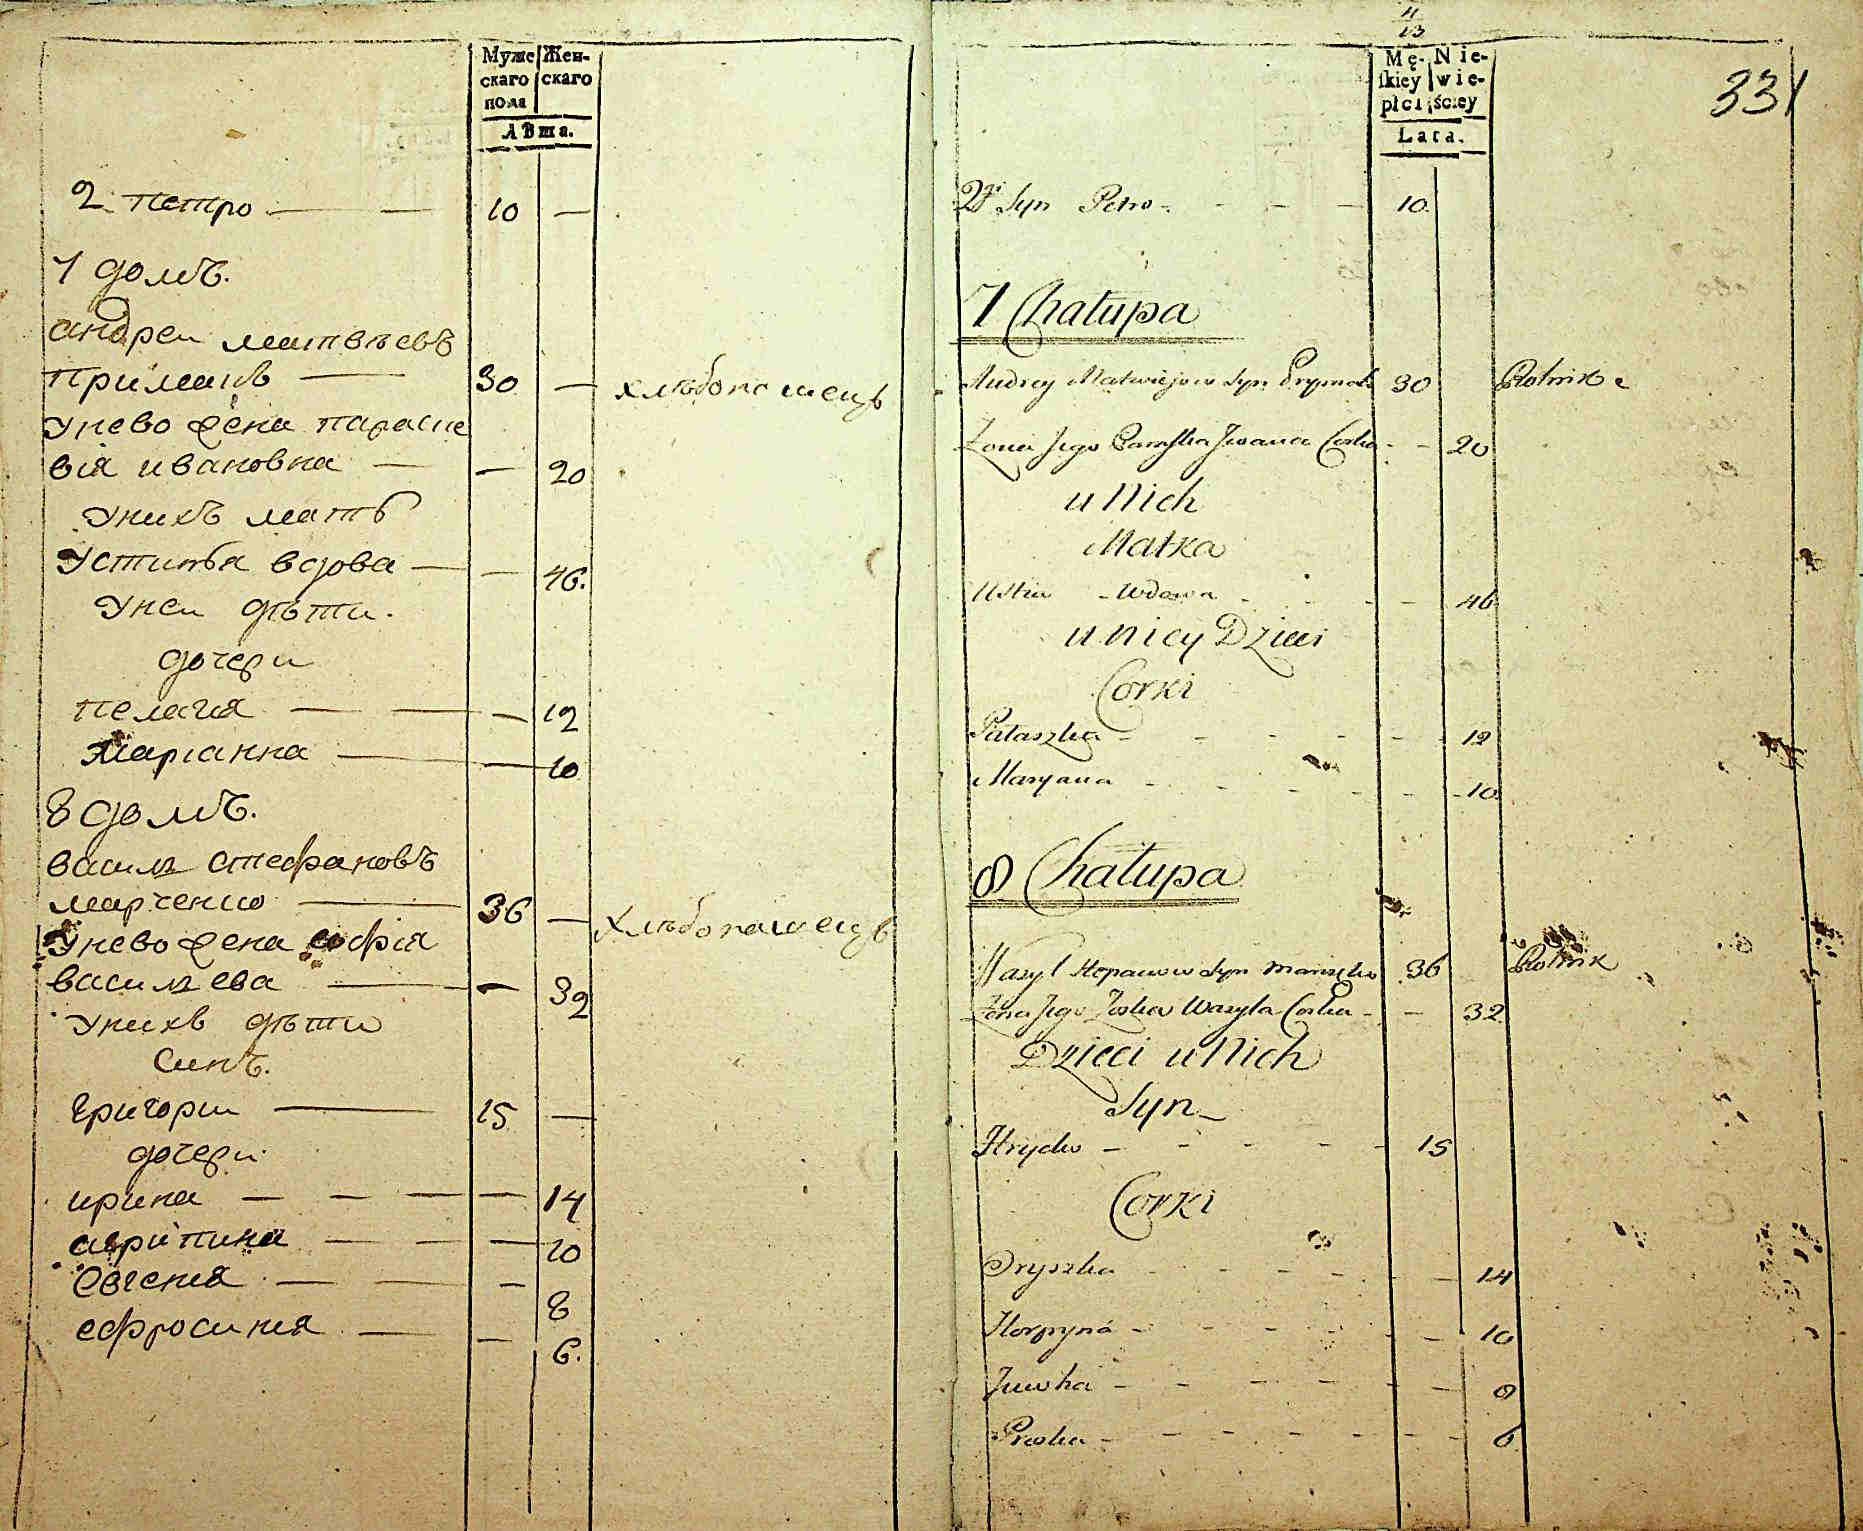 Муже
скаго
пола
Жен-
скаго
Лѣта.
2 петро — — 10 —
7 домъ.
андреи матвѣевъ
примакъ — 30 — хлѣбопашецъ
унево жена параске
вія ивановна — — 20
унихъ мать
устинья вдова — — 46.
унеи дѣти.
дочери
пелагія — — — 12
маріанна — — 10
8 домъ.
василь стефановъ
марченко — 36 — хлѣбопашецъ
унево жена софія
васильева — — 32
унихъ дѣти
синъ.
григории — 15 —
дочери
ирина — — — — 14
агрипина — — — 10
евгенія — — — 8
ефросинія — — 6.
11
13
331
Mę-
skiey
płci
Nie-
wie-
ściey
Lata.
2gi Syn Petro - - - — 10.
7 Chałupa
Andrey Matwiejow Syn Prymak 30 Rolnik
Żona Jego Paraska Jwana Corka - - 20
u Nich
Matka
Ustia - Wdowa - - - - 46
u niey Dzieci
Corki
Pałaszka - - - - - - 12
Maryana - - - - - - 10
8 Chałupa
Wasyl Stepanow Syn Marczenko 36 Rolnik
Żona Jego Zoska Wasyla Corka - - 32
Dzieci u Nich
Syn
Hryćko - - - - - 15
Corki
Oryszka - - - - - - 14
Horpyna - - - - - - 10
Jewka - - - - - - 8
Proska - - - - - - - 6